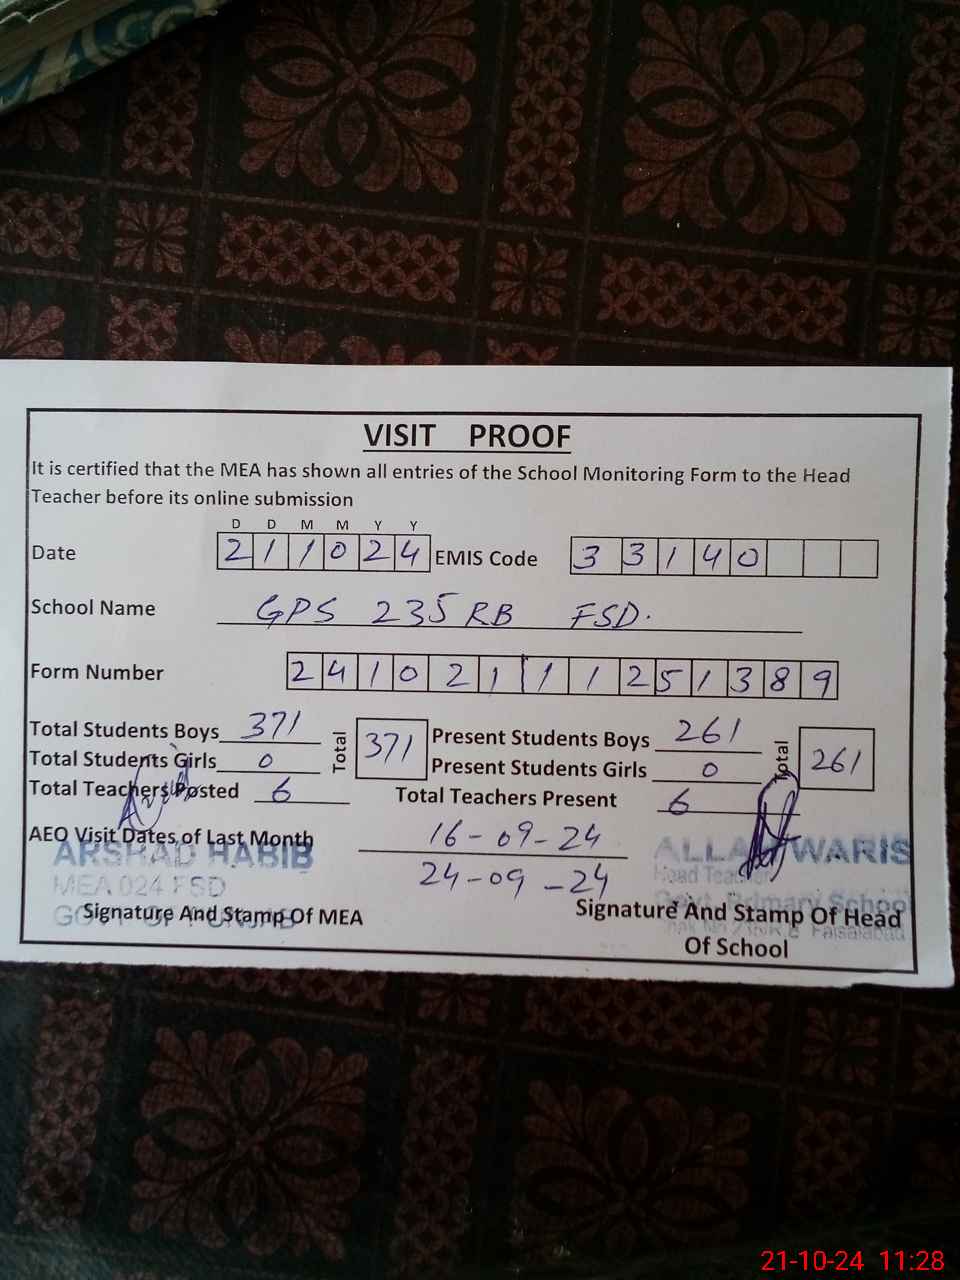 VISIT PROOF
It is certified that the MEA has shown all entries of the School Monitoring Form to the Head
Teacher before its online submission
D D M M Y Y
Date 2 1 1 0 2 4 EMIS Code 3 3 1 4 0
School Name GPS 235 RB FSD.
Form Number 2 4 1 0 2 1 1 1 2 5 1 3 8 9
Total Students Boys 371 Total 371 Present Students Boys 261 Total 261
Total Students Girls 0 Present Students Girls 0
Total Teachers Posted 6 Total Teachers Present 6
AEO Visit Dates of Last Month 16-09-24
24-09-24
ARSHAD HABIB
MEA 024 FSD
GOVT OF PUNJAB
Signature And Stamp Of MEA
ALLAH WARIS
Head Teacher
Govt. Primary School
Faisalabad
Signature And Stamp Of Head
Of School
21-10-24 11:28